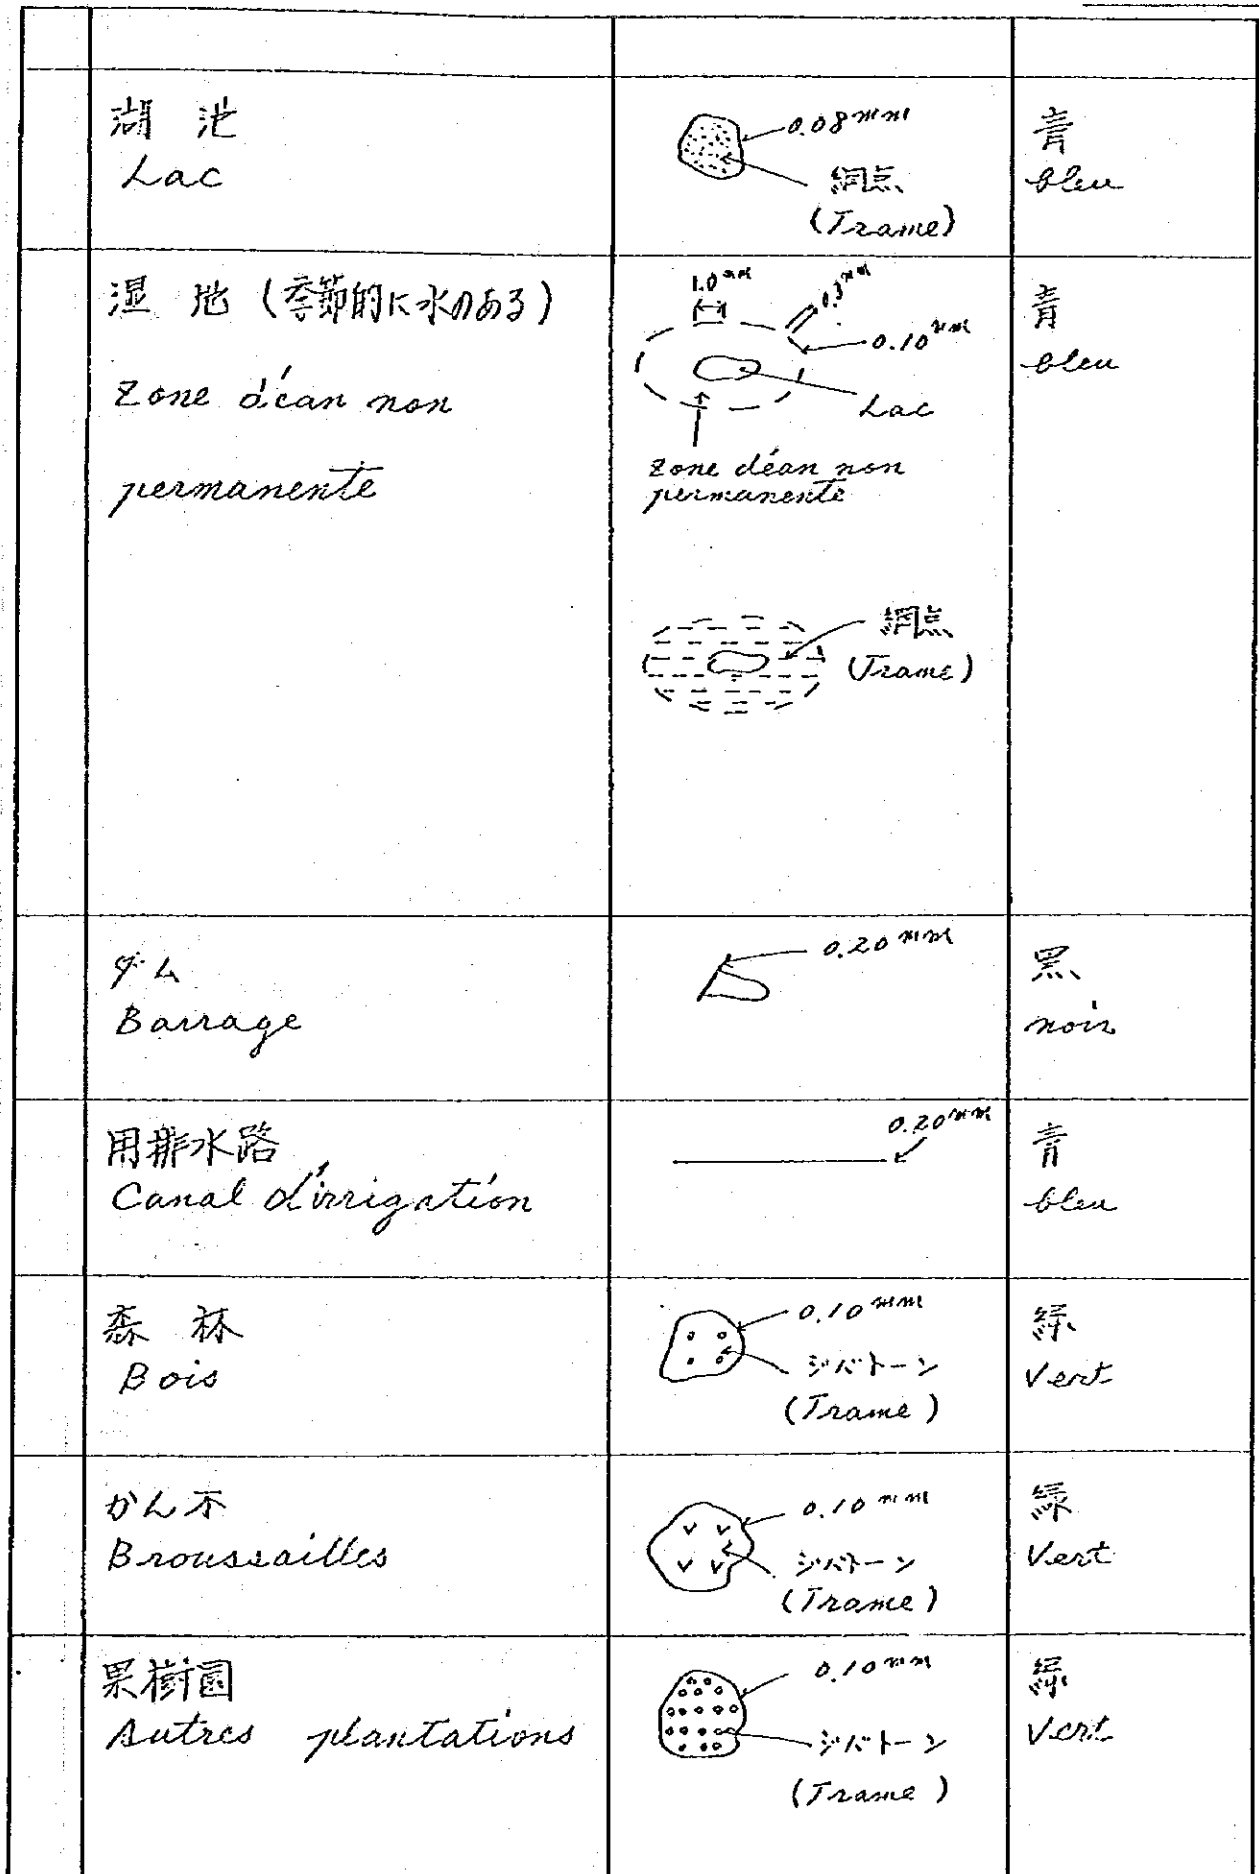 湖 池
Lac
0.08mm
網点
(Trame)
青
bleu
湿 地 (季節的に水のある)
Zone d'éan non
permanente
1.0mm
0.3mm
0.10mm
Lac
Zone d'éan non
permanente
網点
(Trame)
青
bleu
ダム
Barrage
0.20mm
黒
noir
用排水路
Canal d'irrigation
0.20mm
青
bleu
森 林
Bois
0.10mm
ジパトーン
(Trame)
緑
Vert
かん木
Broussailles
0.10mm
ジパトーン
(Trame)
緑
Vert
果樹園
Autres plantations
0.10mm
ジパトーン
(Trame)
緑
Vert